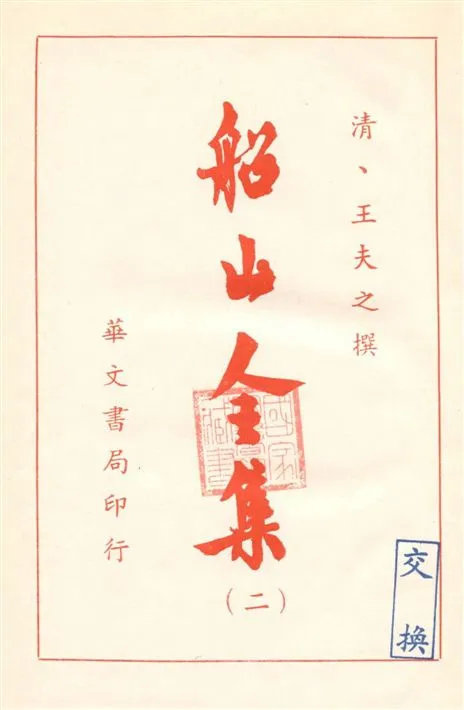 清、王夫之撰
船山全集
(二)
華文書局印行
交換